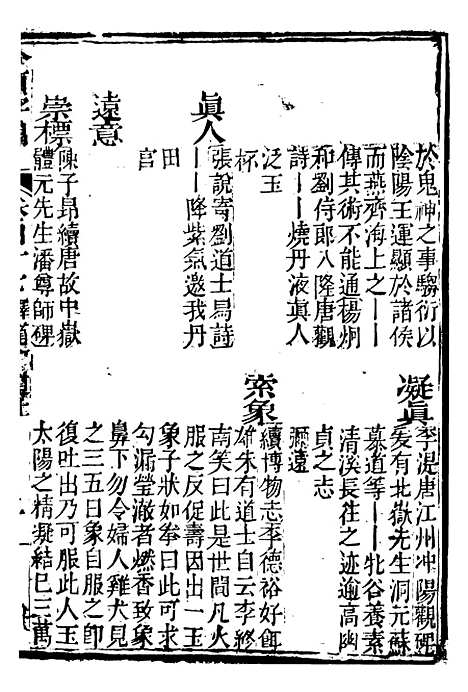 於鬼神之事騶衍以
陰陽王運顯於諸侯
而燕齊海上之——
傳其術不能通楊炯
和劉侍郎入隆唐觀
詩——燒丹液眞人
泛玉
杯
眞人
張說寄劉道士舄詩
——降紫氣邀我丹
田
宮
遠意
崇標
陳子昂續唐故中嶽
體元先生潘尊師碑
凝眞
李湜唐江州冲陽觀碑
爰有北嶽先生洞元蘇
慕道等——牝谷養素
清溪長往之迹逾高幽
貞之志
彌遠
索象
續博物志李德裕好餌
雄朱有道士自云李終
南笑曰此是世間凡火
服之反促壽因出一玉
象子狀如拳曰此可求
勾漏瑩澈者燃香致象
鼻下勿令婦人雞犬見
之三五日象自服之卽
復吐出乃可服此人玉
太陽之精凝結已三萬